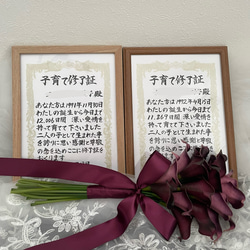 子育て修了証
殿
あなた方は1991年11月30日
わたしの誕生から今日まで
12,306日間 深い愛情を
持って育てて下さいました
二人の子として生まれた事
を誇りに思い感謝と尊敬
の念を込めここに修了証
をおくります
子育て修了証
殿
あなた方は1992年4月15日
わたしの誕生から今日まで
日間 深い愛情を
持って育てて下さいました
二人の子として生まれた事
を誇りに思い感謝と尊敬
の念を込めここに修了証